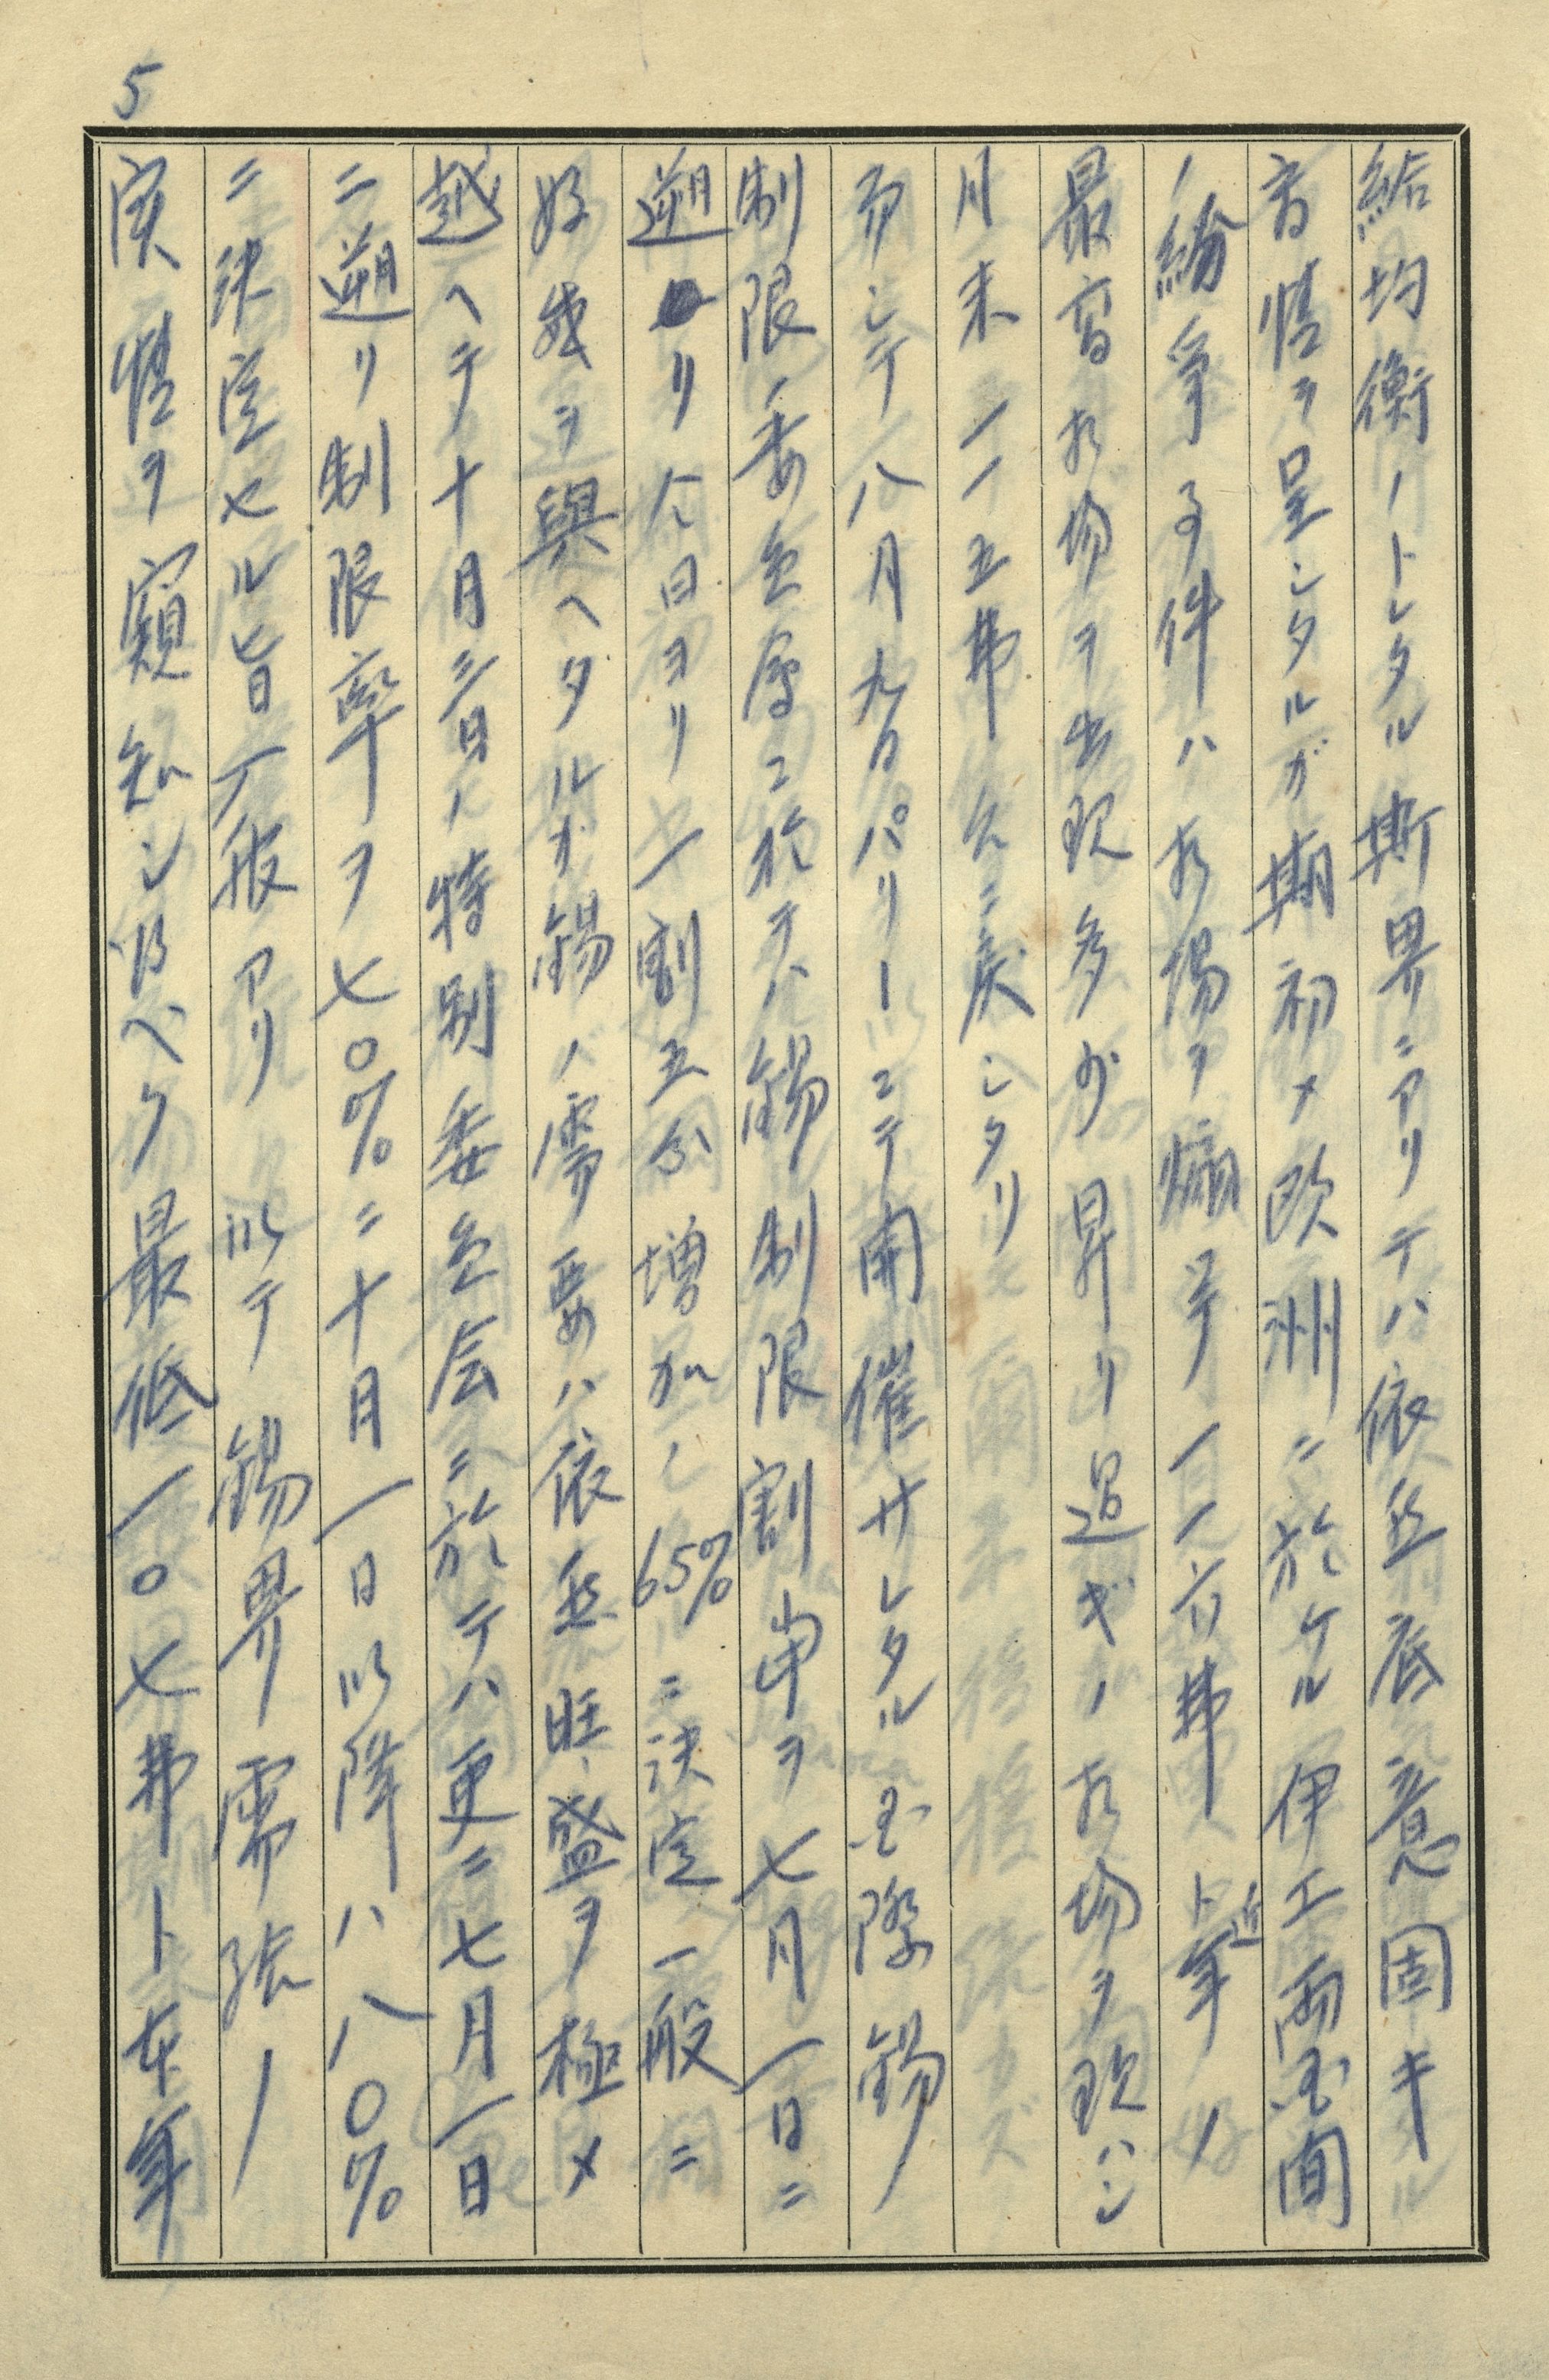 5
給均衡ノトレタル斯界ニアリテハ依然底意固キ
方情ヲ呈シタルガ期初メ欧洲ニ於ケル伊エ両国間
ノ紛争事件ハ相場ヲ煽リ一一六弗ト近年ノ
最高相場ヲ出現多少昇リ過ギノ相場ヲ現ハシ
月末一一五弗ニ戻シタリ
而シテ八月九日パリーニテ開催サレタル国際錫
制限委員会ニ於テハ錫制限割当ヲ七月一日ニ
遡リ今日ヨリ一割五分増加ノ65%ニ決定一般ニ
好感ヲ與ヘタルガ錫ノ需要ハ依然旺盛ヲ極メ
越ヘテ十月三日ノ特別委員会ニ於テハ更ニ七月一日
ニ遡リ制限率ヲ七〇%ニ十月一日以降ハ八〇%
ニ決定セル旨入報アリ以テ錫界需給ノ
実情ヲ窺知シ得ベク最低一〇七弗ト本年